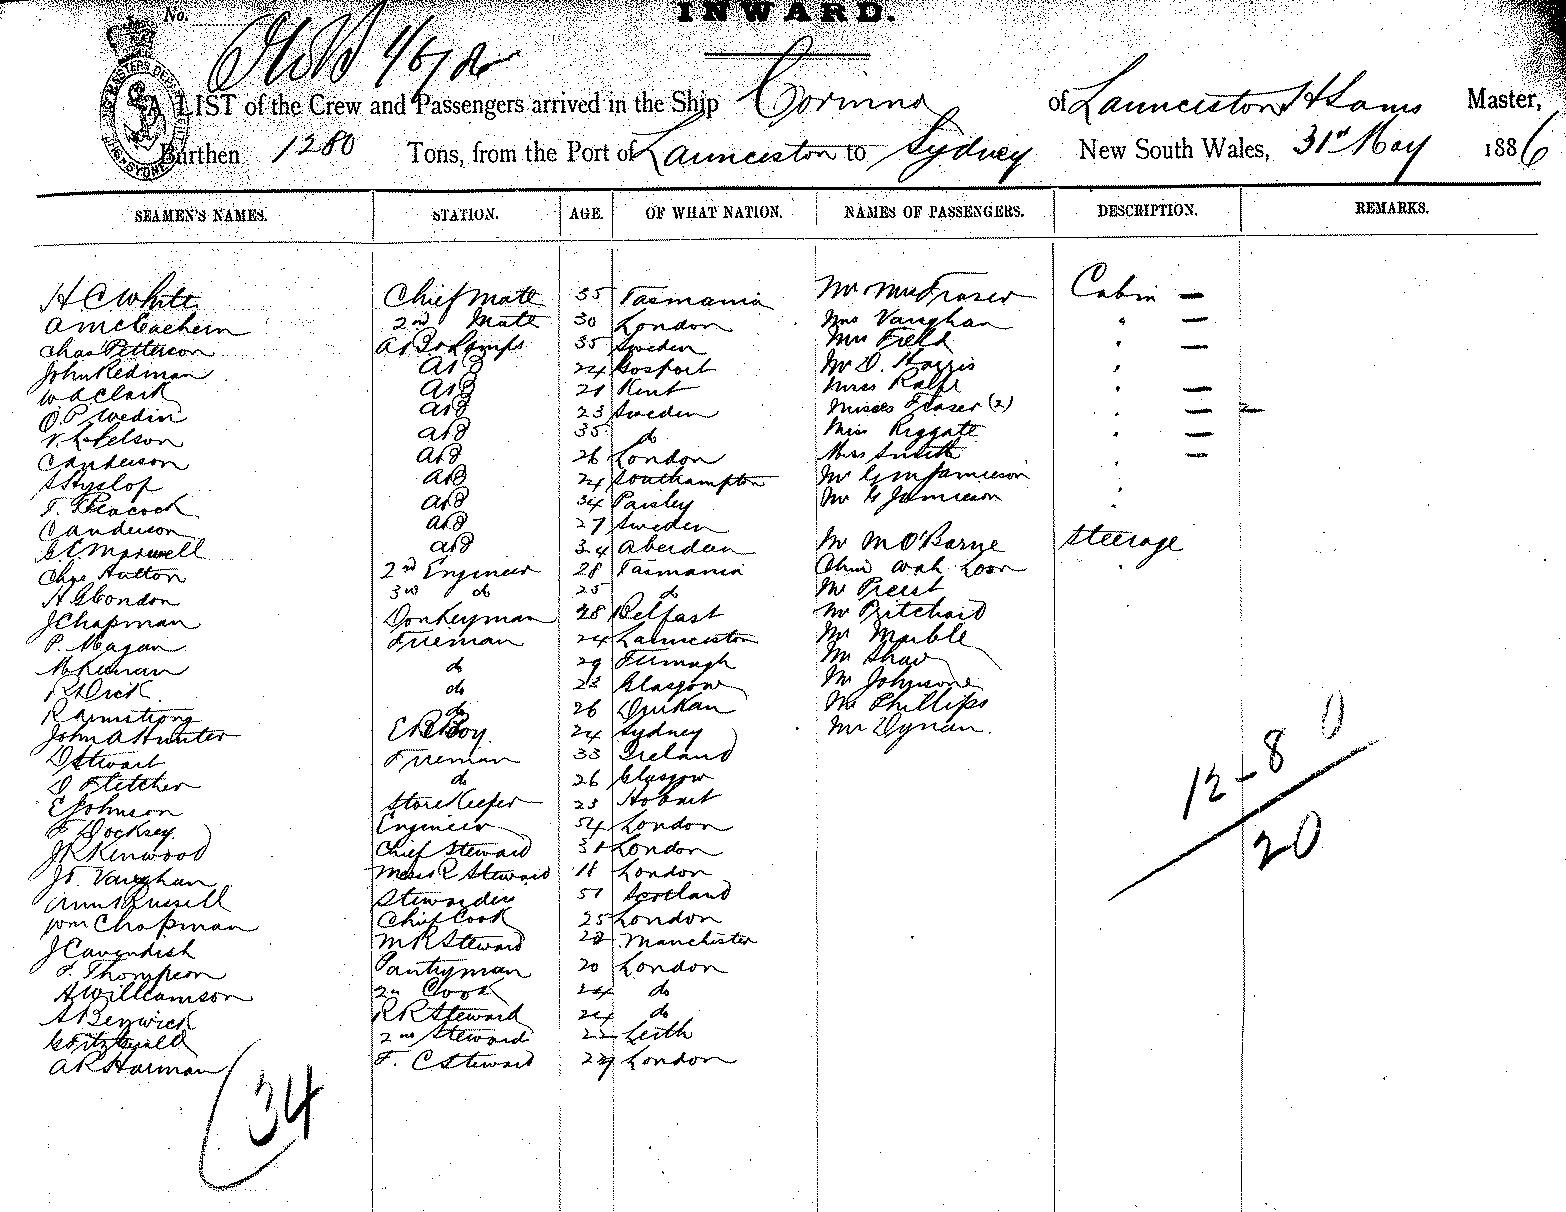 No.
INWARD.
A LIST of the Crew and Passengers arrived in the Ship Corinna of Launceston H Sams Master,
Burthen 1280 Tons, from the Port of Launceston to Sydney New South Wales, 31st May 1886
SEAMEN'S NAMES. STATION. AGE. OF WHAT NATION. NAMES OF PASSENGERS. DESCRIPTION. REMARKS.
H C White Chief Mate 35 Tasmania Mr Mrs Fraser Cabin —
A McEachern 2nd Mate 30 London Mrs Vaughan " —
Chas Petterson AB & Lamps 35 Sweden Mrs Field " —
John Redman AB 24 Gosport Mr D. Harris "
W A Clark AB 21 Kent Miss Ralfe " —
O. P. Wedin AB 23 Sweden Misses Fraser (2) " — 2
V. L. Nelson AB 35 do Miss Piggate " —
C Anderson AB 26 London Mrs Smith " —
S Hyslop AB 24 Southampton Mr G M Jamieson "
T. Peacock AB 34 Paisley Mr G Jamieson "
O Anderson AB 27 Sweden
G E Maxwell AB 34 Aberdeen Mr M O'Baryе Steerage
Chas Hutton 2nd Engineer 28 Tasmania Wah Loon "
H G Condon 3rd do 25 do Mr Priest
J Chapman Donkeyman 28 Belfast Mr Pritchard
P. Magan Fireman 24 Launceston Mr Marble
M Kernan do 29 Mr Shaw
R Dick do 22 Glasgow Mr Johnson
R Armstrong do 26 Mr Phillips
John A Hunter E R Boy 24 Sydney Mr Dynan.
D Stewart Fireman 33 Ireland
D Fletcher do 26 Glasgow
E Johnson Storekeeper 23 Hobart
F Docksey Engineer 54 London
J R Kenwood Chief Steward 31 London
J T. Vaughan Mess R Steward 18 London
Ann Russell Stewardess 51 Scotland
Wm Chapman Chief Cook 25 London
J Cavendish M R Steward 22 Manchester
T. Thompson Pantryman 20 London
A Williamson 2nd Cook 24 do
A Benwick R R Steward 24 do
G Fitzgerald 2nd Steward 22 Leith
A R Harman F. C Steward 29 London
34
12-8 0
20